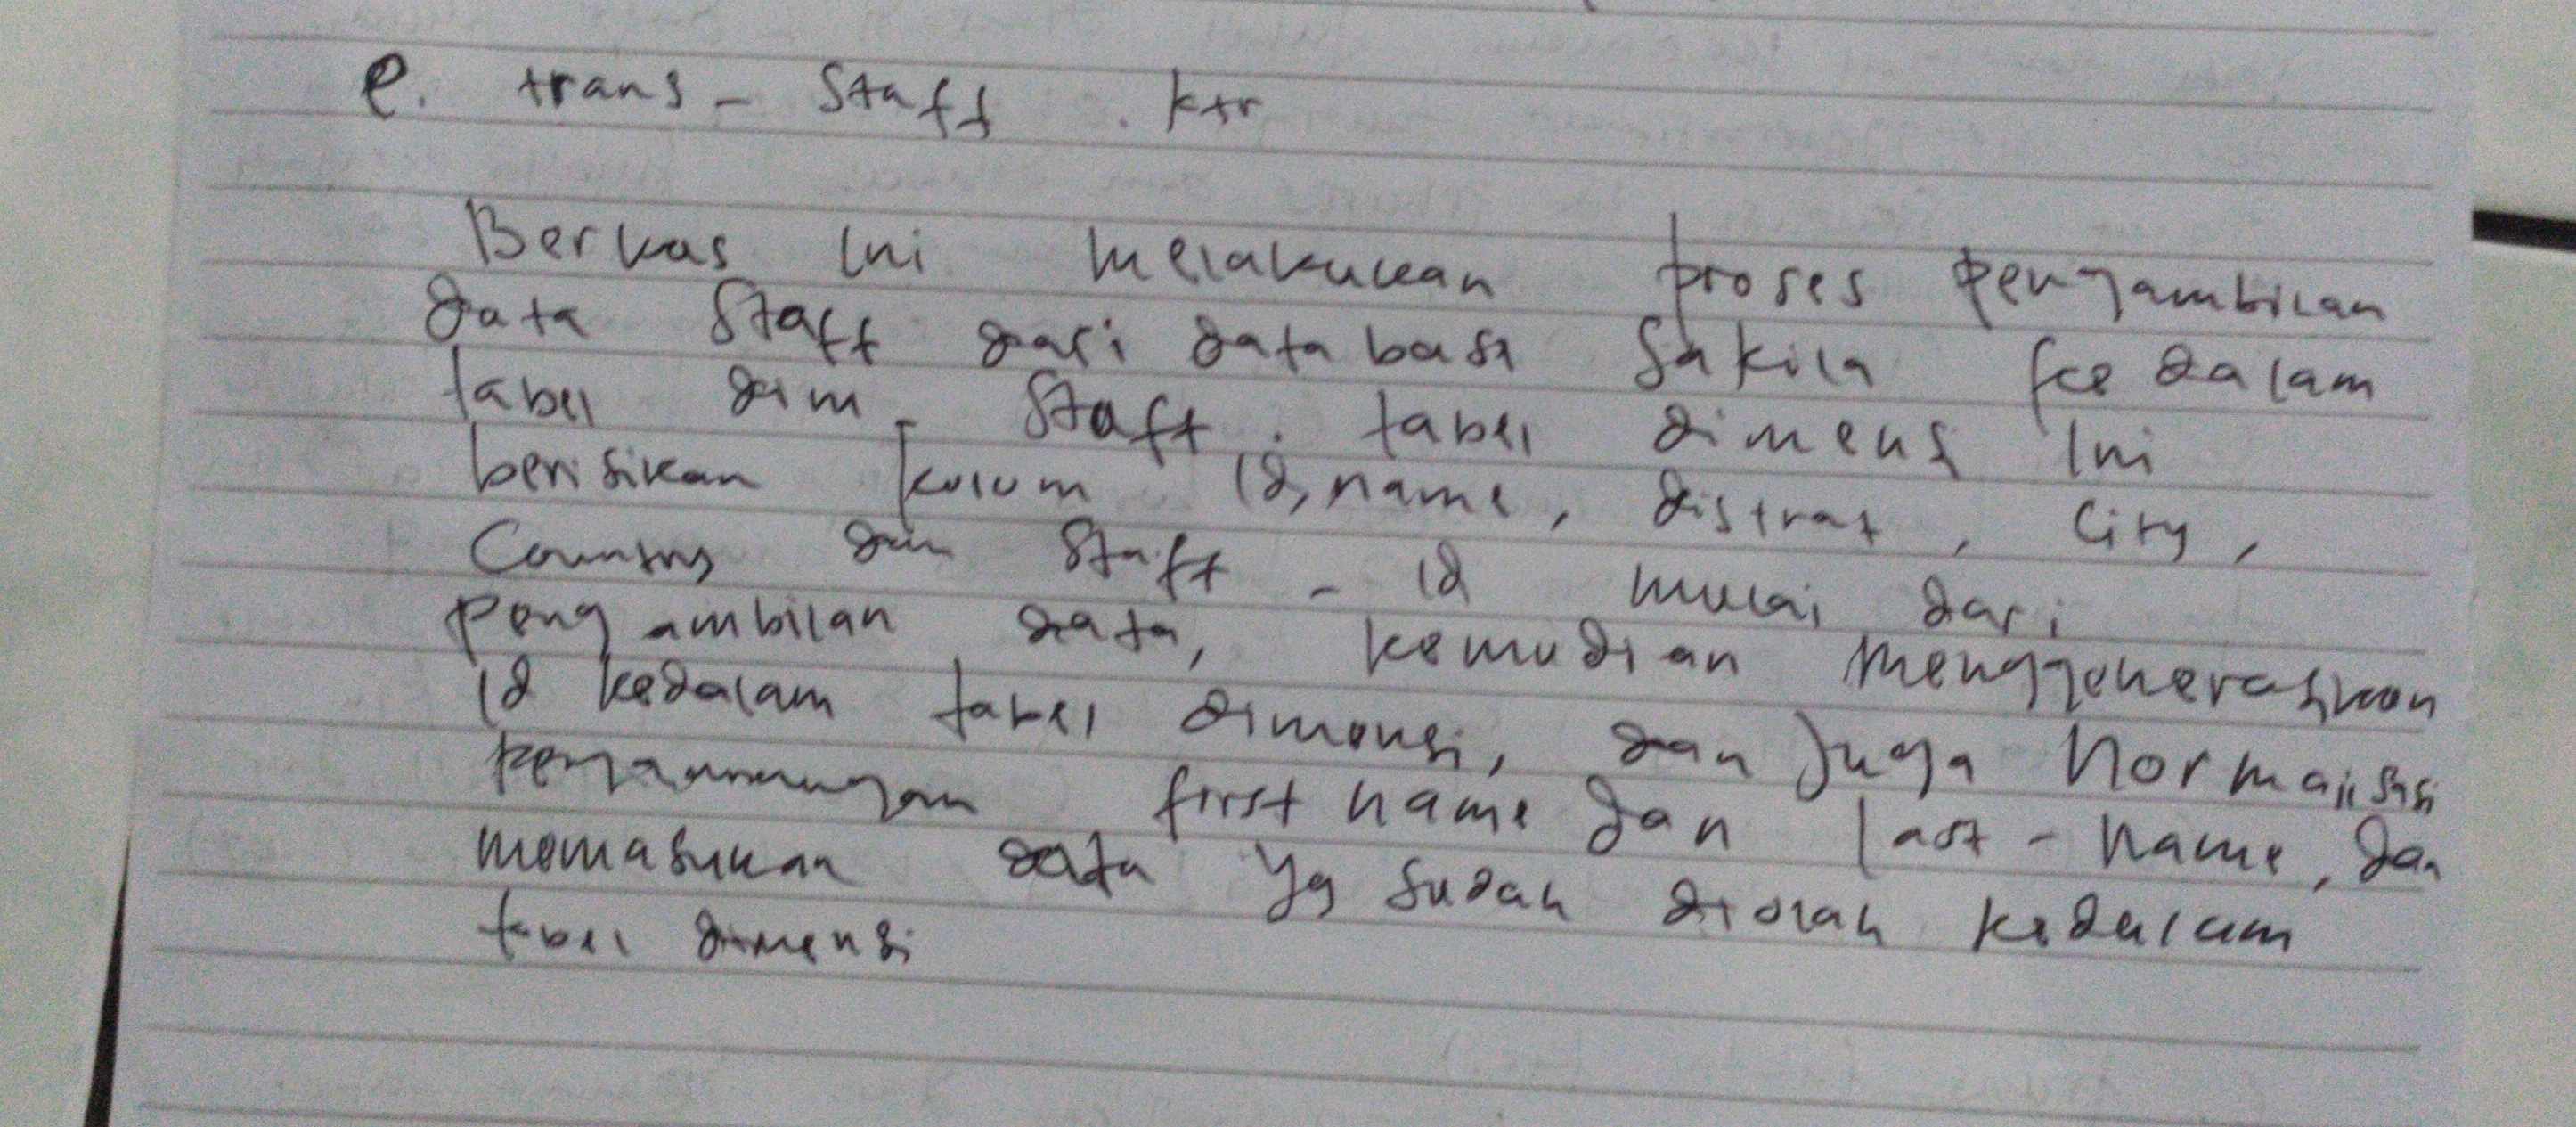 e. trans - Staff . ktr
Berkas ini melakukan proses pengambilan
data Staff dari data base Sakila ke dalam
tabel dim - Staff. tabel dimensi ini
berisikan kolom id, name, distrat, City,
Country dan Staff - id mulai dari
pengambilan data, kemudian menggenerasikan
id kedalam tabel dimensi, dan juga Normalisasi
first name dan last - name, dan
memasukan data yg sudah diolah kedalam
tabel dimensi